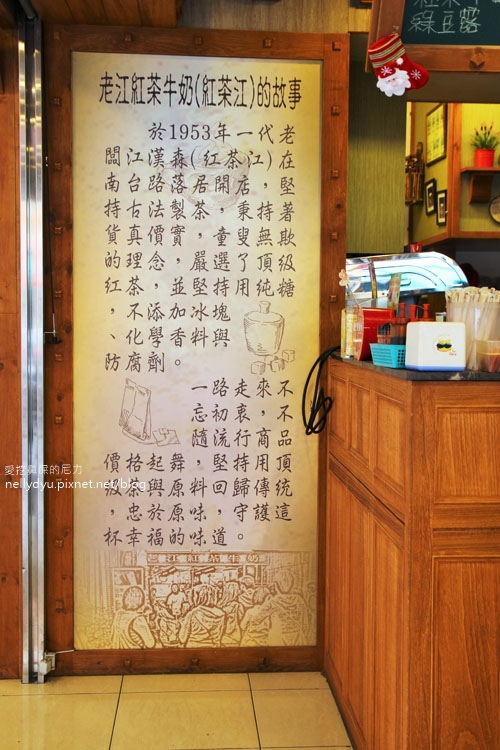 老江紅茶牛奶(紅茶江)的故事
於1953年一代老
闆江漢森(紅茶江)在
南台路落居開店，堅
持古法製茶，秉持著
貨真價實，童叟無欺
的理念，嚴選了頂級
紅茶，並堅持用純糖
，不添加冰塊
、化學香料與
防腐劑。
一路走來，不
忘初衷，不
隨流行商品
價格起舞，堅持用頂
級茶與原料，回歸傳統
，忠於原味，守護這
杯幸福的味道。
老江紅茶牛奶
綠豆露
愛挖鼻屎的尼力
nellydyu.pixnet.net/blog